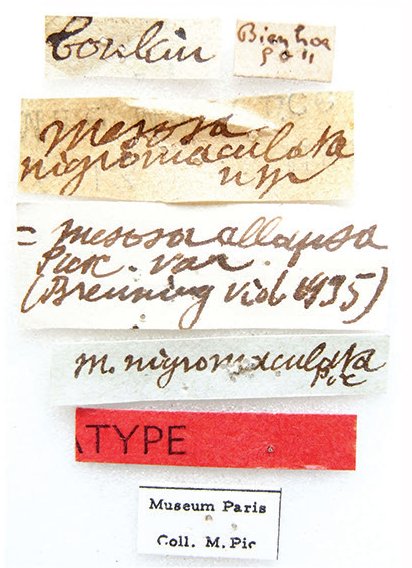 Coulin
Bienhoa
mesosa
nigromaculata
= mesosa allapsa
Pasc. var
(Breuning vid 1935)
m. nigromaculata
Pic
TYPE
Museum Paris
Coll. M. Pic